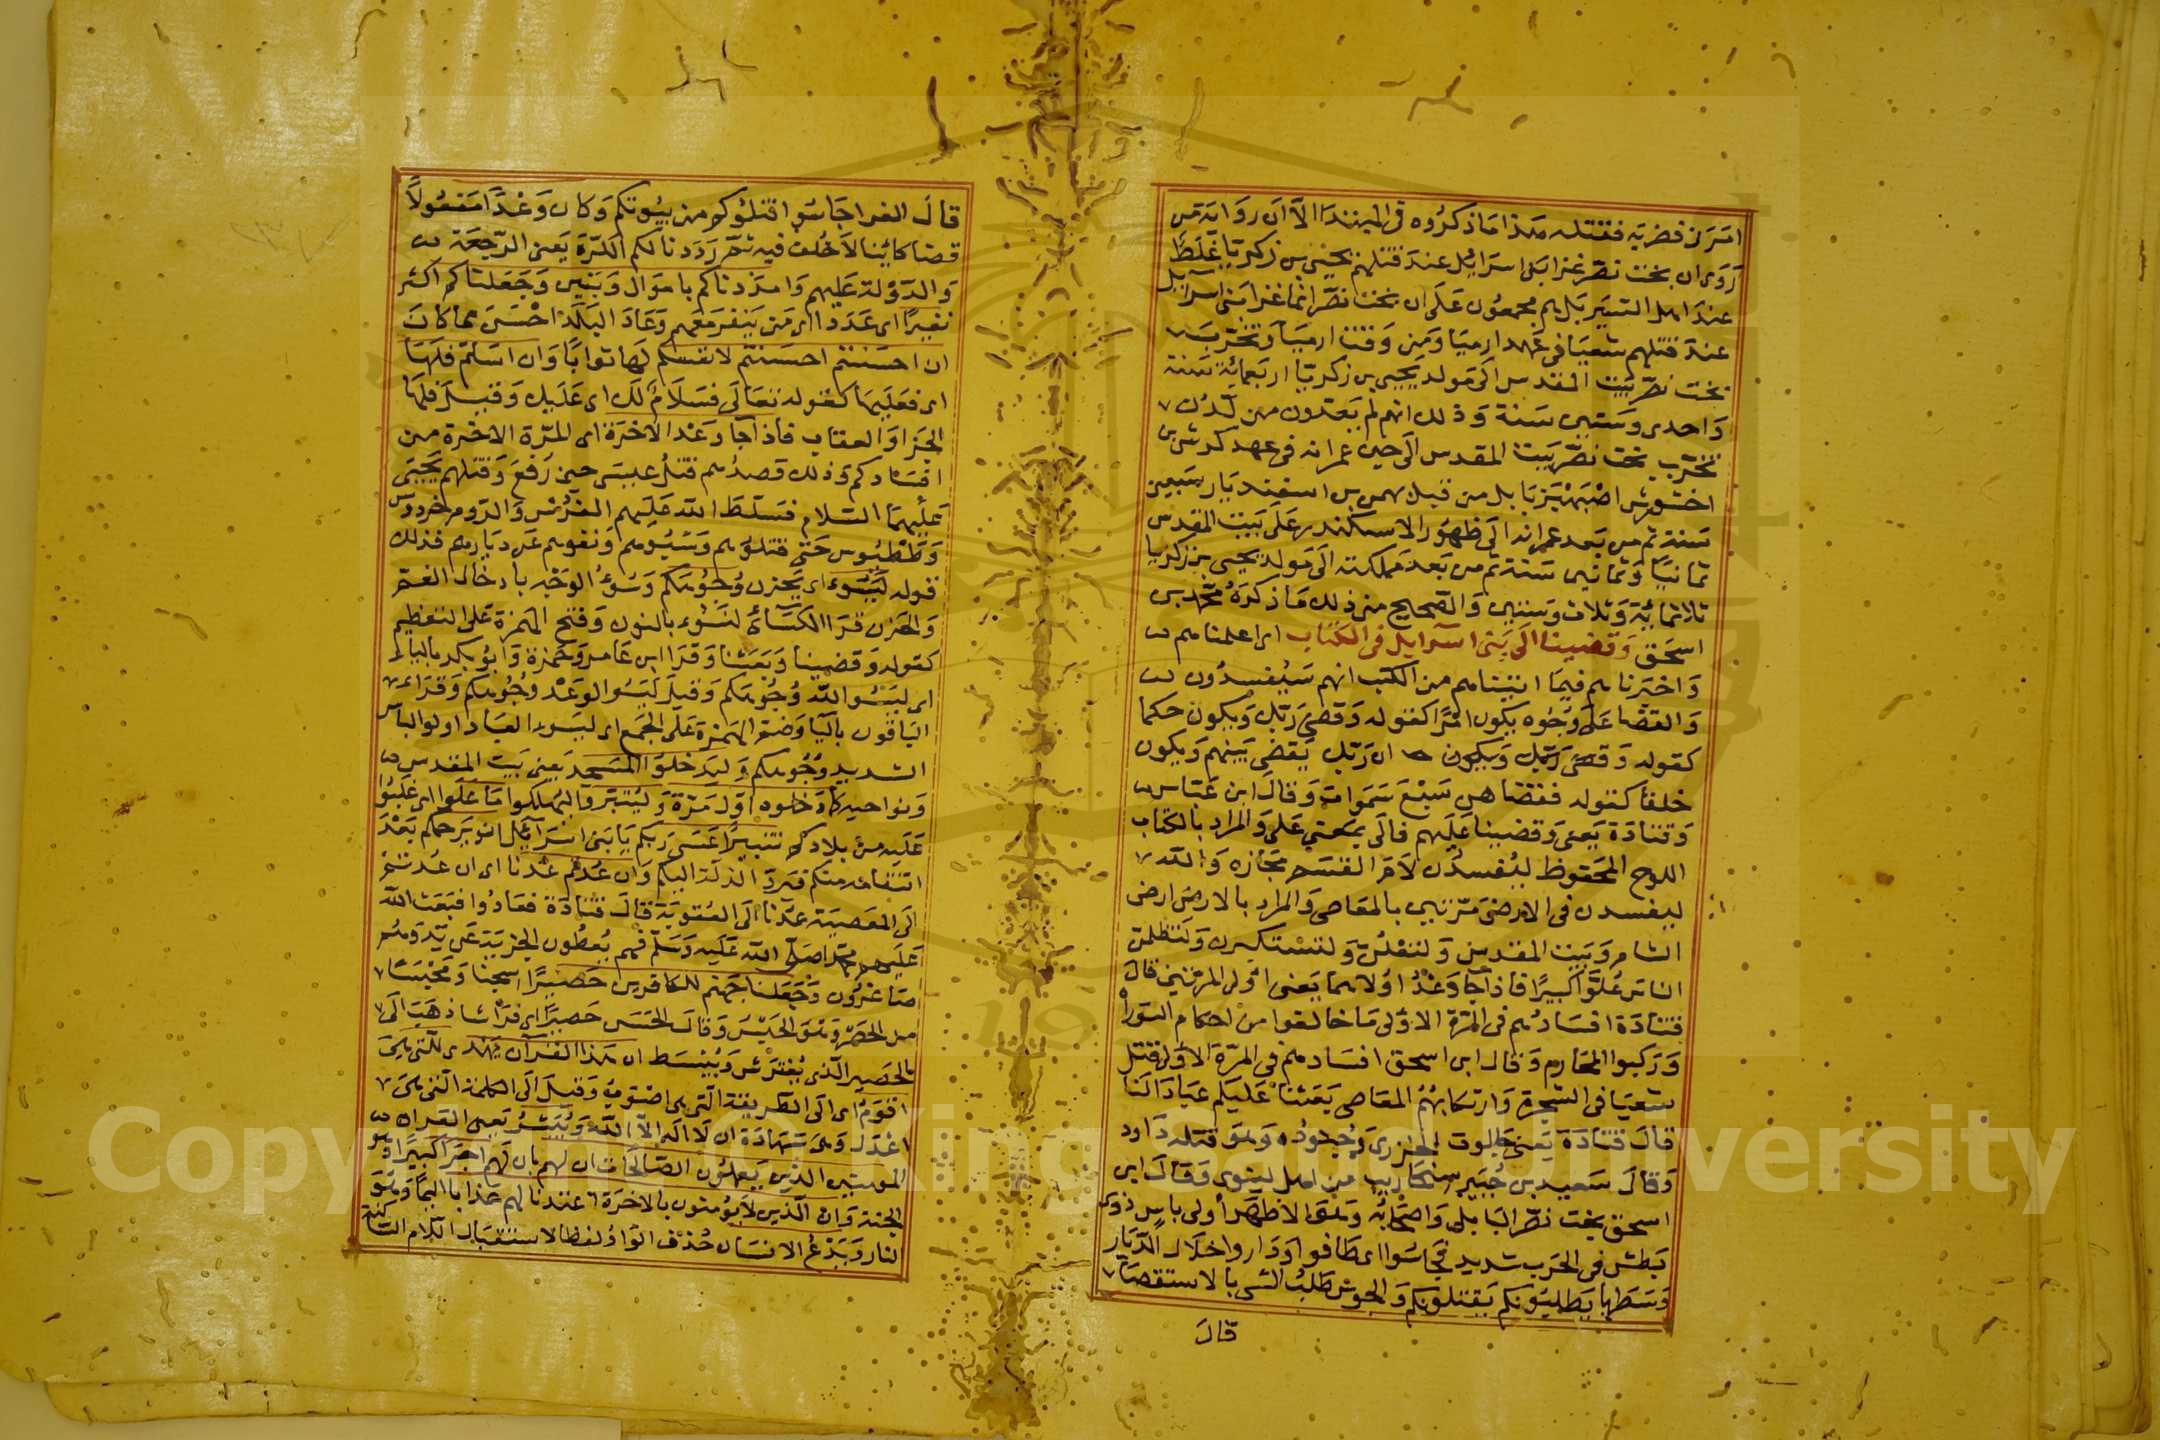 امر من ضربه فقتله هذا ما ذكروه في المبتدا الا ان رواية من
روى ان بخت نصر غزا بنى اسرايل عند قتلهم يحيى بن زكريا غلط
عند اهل السير بل هم مجمعون على ان بخت نصر انما غزا بنى اسرايل
عند قتلهم شعيا فى عهد ارميا ومن وقت ارميا وتخريب
بخت نصر بيت المقدس الى مولد يحيى بن زكريا اربعمائة سنة
واحدى وستين سنة وذلك انهم لم يعدون من لدن
تخريب بخت نصر بيت المقدس الى حين عمرانه فى عهد كوش بن
اخشورش اصبهبذ بابل من قبل بهمن بن اسفنديار سبعين
سنة ثم من بعد عمرانه الى ظهور الاسكندر على بيت المقدس
ثمانيا وثمانين سنة ثم من بعد مملكته الى مولد يحيى بن زكريا
ثلاثمائة وثلاث وستين والصحيح من ذلك ما ذكره محمد بن
اسحق وقضينا الى بنى اسرايل فى الكتاب اى اعلمناهم
واخبرناهم فيما اتيناهم من الكتب انهم سيفسدون
والقضا على وجوه يكون امرا كقوله وقضى ربك ويكون حكما
كقوله وقضى ربك ويكون ان ربك يقضى بينهم ويكون
خلقا كقوله فقضاهن سبع سموات وقال ابن عباس
وقتادة يعنى وقضينا عليهم فالى بمعنى على والمراد بالكتاب
اللوح المحفوظ ليفسدن لام القسم مجازه والله
ليفسدن فى الارض مرتين بالمعاصى والمراد بالارض ارض
الشام وبيت المقدس ولتعلن ولتستكبرن ولتظلمن
الناس علوا كبيرا فاذا جا وعد اولاهما يعنى اولى المرتين قال
قتادة افسادهم فى المرة الاولى ما خالفوا من احكام التوراة
وركبوا المحارم وقال ابن اسحق افسادهم فى المرة الاولى قتل
شعيا فى الشجرة وارتكابهم المعاصى بعثنا عليكم عبادا لنا
قال قتادة يعنى جالوت الخزرى وجنوده وهو قتله داود
وقال سعيد بن جبير سنحاريب من اهل نينوى وقال ابن
اسحق بخت نصر البابلى واصحابه وهو الاظهر اولى باس ذوى
بطش فى الحرب شديد فجاسوا اى طافوا وداروا خلال الديار
وسطها يطلبونكم يقتلونكم والجوس طلب الشى بالاستقصا
قال
قال الفرا جاسوا قتلوكم من بيوتكم وكان وعدا مفعولا
قضا كائنا لا خلف فيه ثم رددنا لكم الكرة يعنى الرجعة
والدولة عليهم وامددناكم باموال وبنين وجعلناكم اكثر
نفيرا اى عددا اى من ينفر معهم وعاد البلد احسن مما كان
ان احسنتم احسنتم لانفسكم لها ثوابا وان اساتم فلها
اى فعليها كقوله تعالى فسلام لك اى عليك وقيل فلها
الجزا والعقاب فاذا جا وعد الاخرة اى المرة الاخرة من
افسادكم وذلك قصدهم قتل عيسى حين رفع وقتلهم يحيى
عليهما السلام فسلط الله عليهم الفرس والروم خردوس
وططيوس حتى قتلوهم وسبوهم ونفوهم عن ديارهم فذلك
قوله ليسوء اى يحزن وجوهكم وسوء الوجه بادخال الغم
والحزن قرا الكسائى لنسوء بالنون وفتح الهمزة على التعظيم
كقوله وقضينا وبعثنا وقرا ابن عامر وحمزة وابو بكر باليا
اى ليسو الله وجوهكم وقيل ليسو الوعد وجوهكم وقرا
الباقون باليا وضم الهمزة على الجمع اى ليسو العباد اولو الباس
الشديد وجوهكم وليدخلوا المسجد يعنى بيت المقدس
ونواحيه كما دخلوه اول مرة وليتبروا ليهلكوا ما علوا اى غلبوا
عليه من بلادكم تتبيرا عسى ربكم يا بنى اسرائيل ان يرحمكم بعد
انتقامه منكم فيرد الدولة اليكم وان عدتم عدنا اى ان عدتم
الى المعصية عدنا الى العقوبة قال قتادة فعادوا فبعث الله
عليهم محمدا صلى الله عليه وسلم فهم يعطون الجزية عن يد وهم
صاغرون وجعلنا جهنم للكافرين حصيرا سجنا ومحبسا
من الحصر وهو الحبس وقال الحسن حصيرا اى فراشا ذهب الى
الحصير الذى يفترش ويبسط ان هذا القرآن يهدى للتى هى
اقوم اى الى الطريقة التى هى اصوب وقيل الى الكلمة التى هى
اعدل وهى شهادة ان لا اله الا الله ويبشر يعنى القران
المومنين الذين يعملون الصالحات ان لهم بان لهم اجرا كبيرا وهو
الجنة وان الذين لا يومنون بالاخرة اعتدنا لهم عذابا اليما وهو
النار ويدع الانسان حذف الواو لفظا لاستقبال اللام الساكنة
Copyright © King Saud University